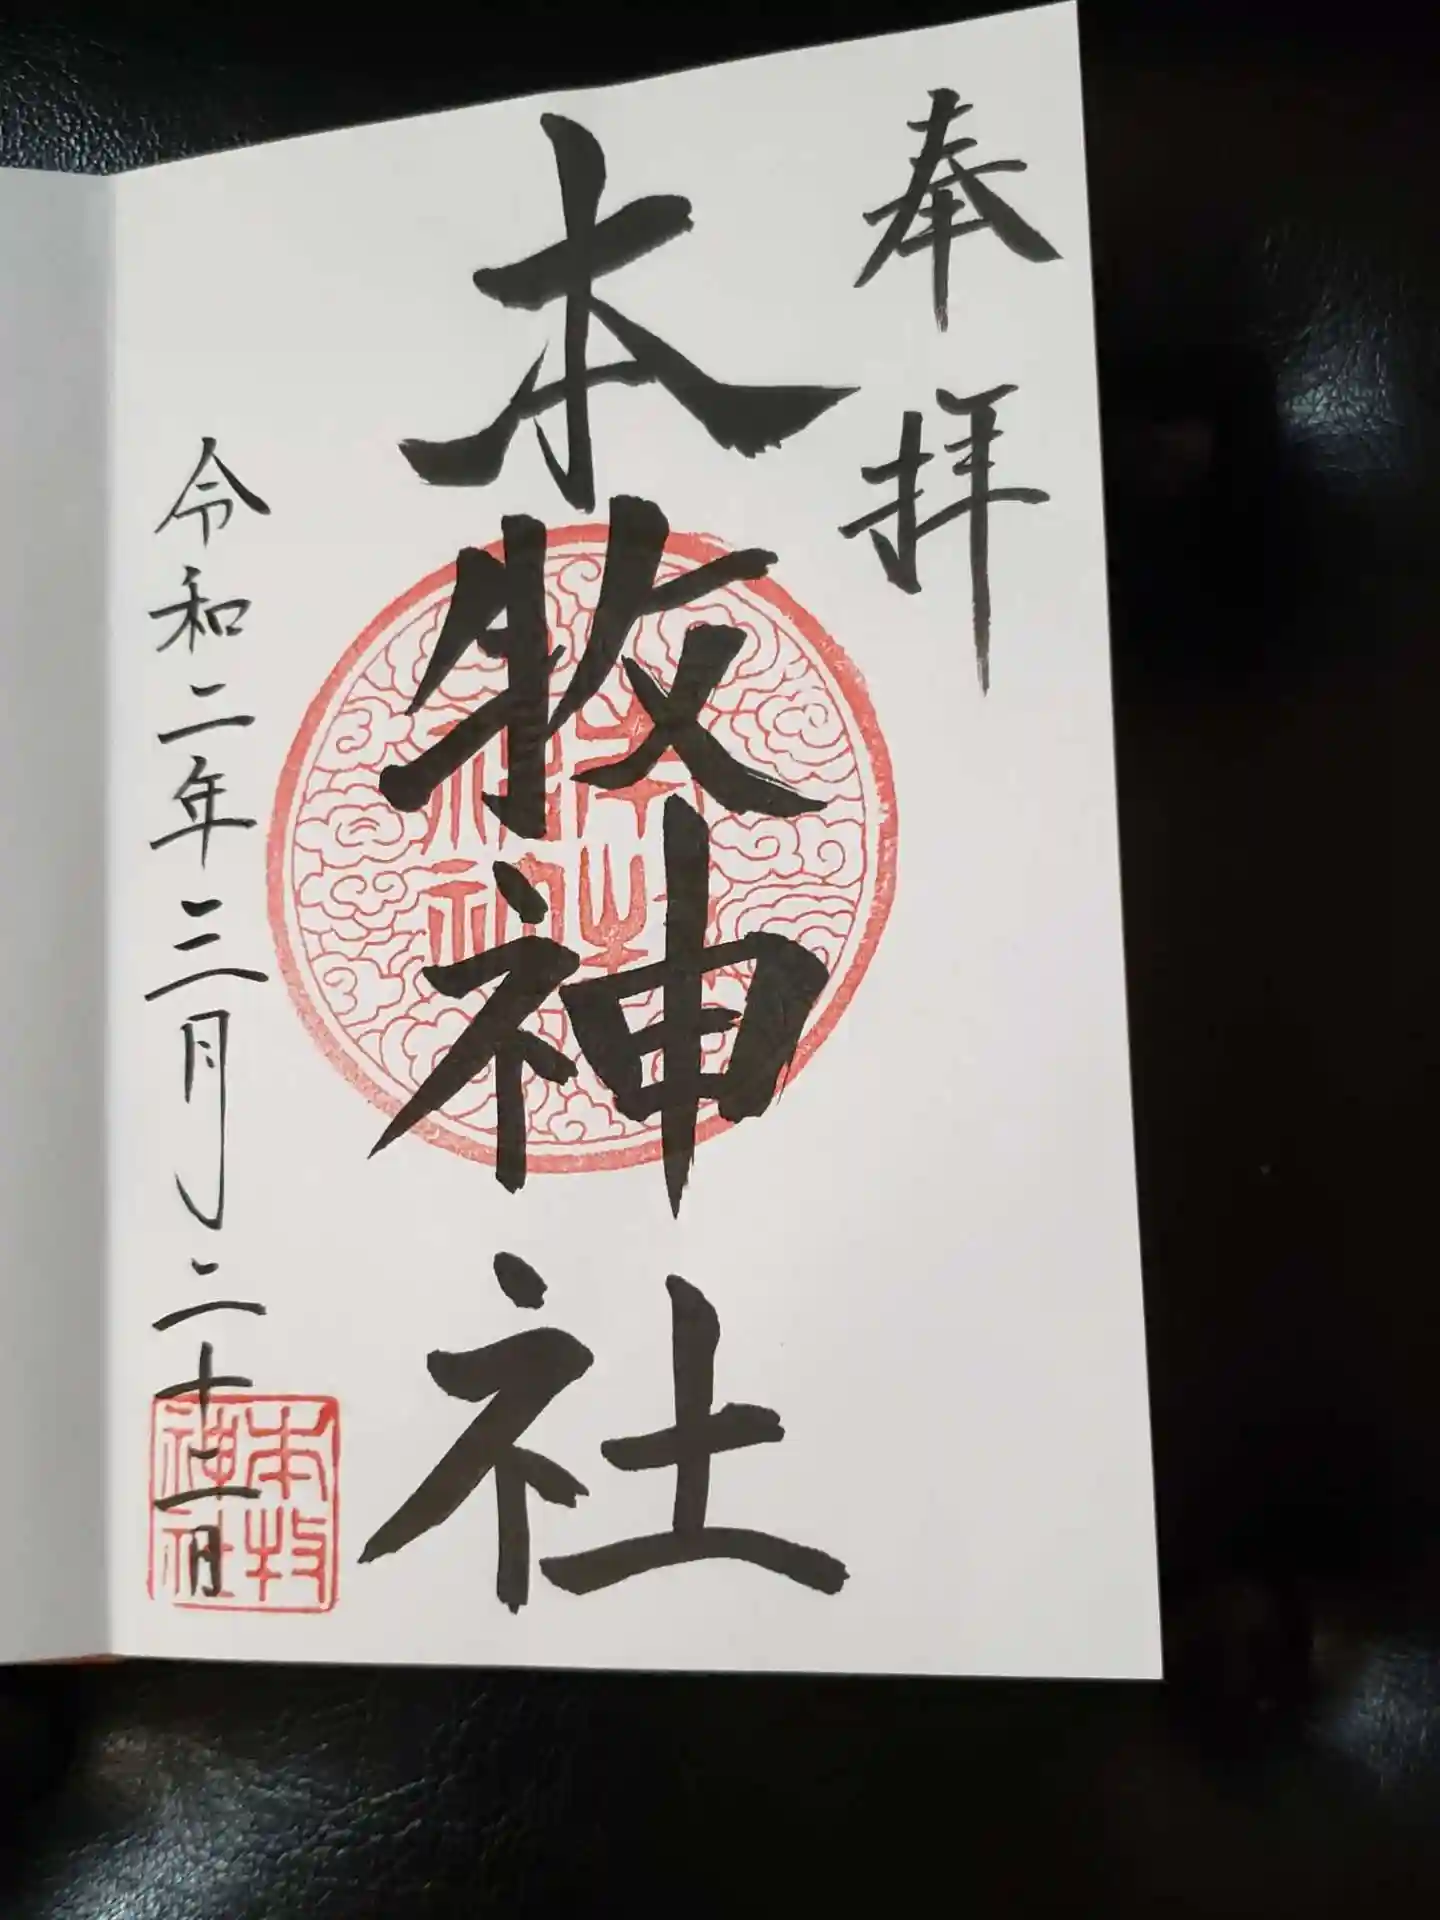 奉拝
本牧神社
本牧
神社
令和二年三月二十二日
本牧
神社